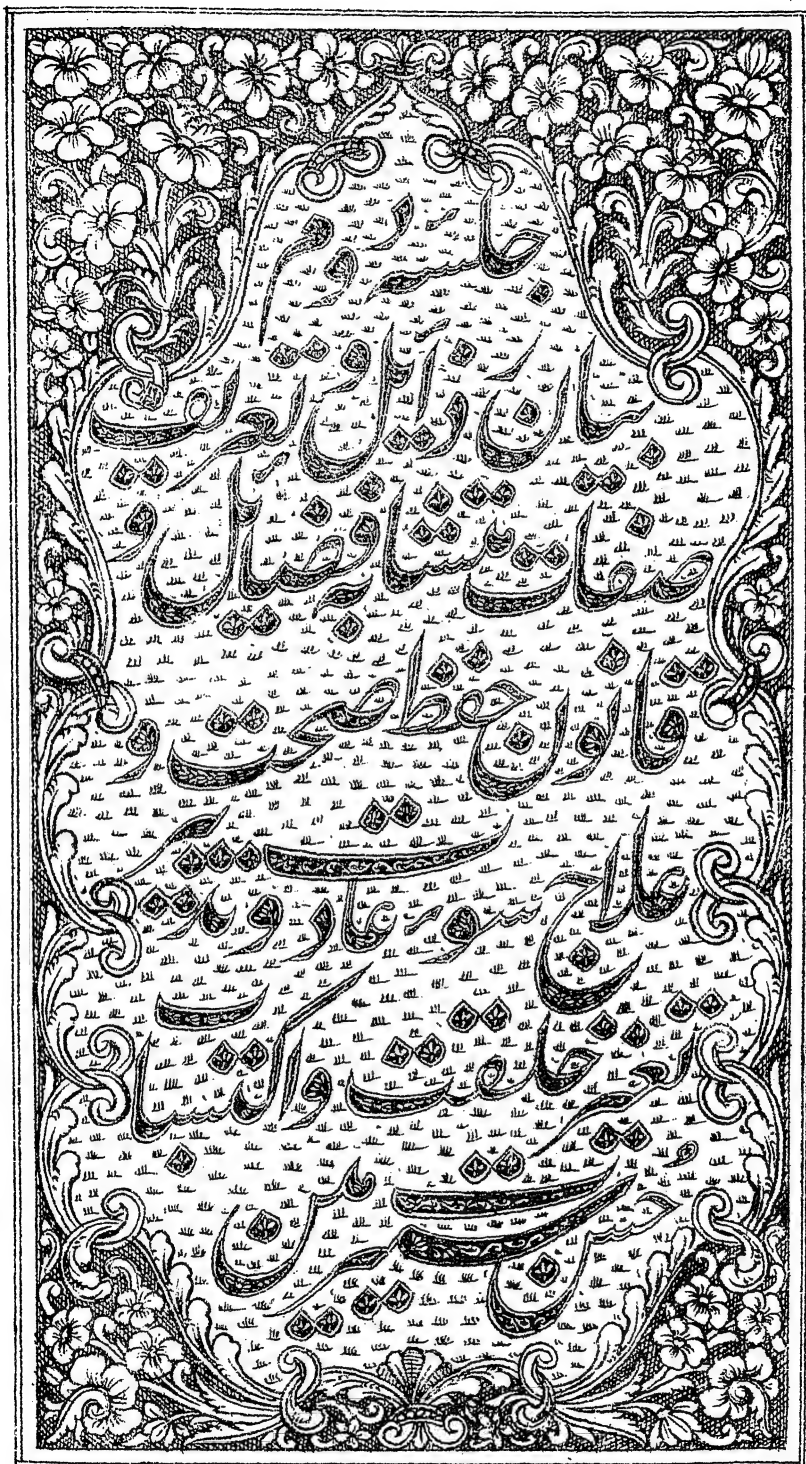 جلسهٔ دوم
بیان رذایل و تعریف
صفات متشابه فضایل و
قانون حفظ صحت و
علاج سوء عادت و تدبیر
تغییر خلقت و اکتساب
حسن سیرت